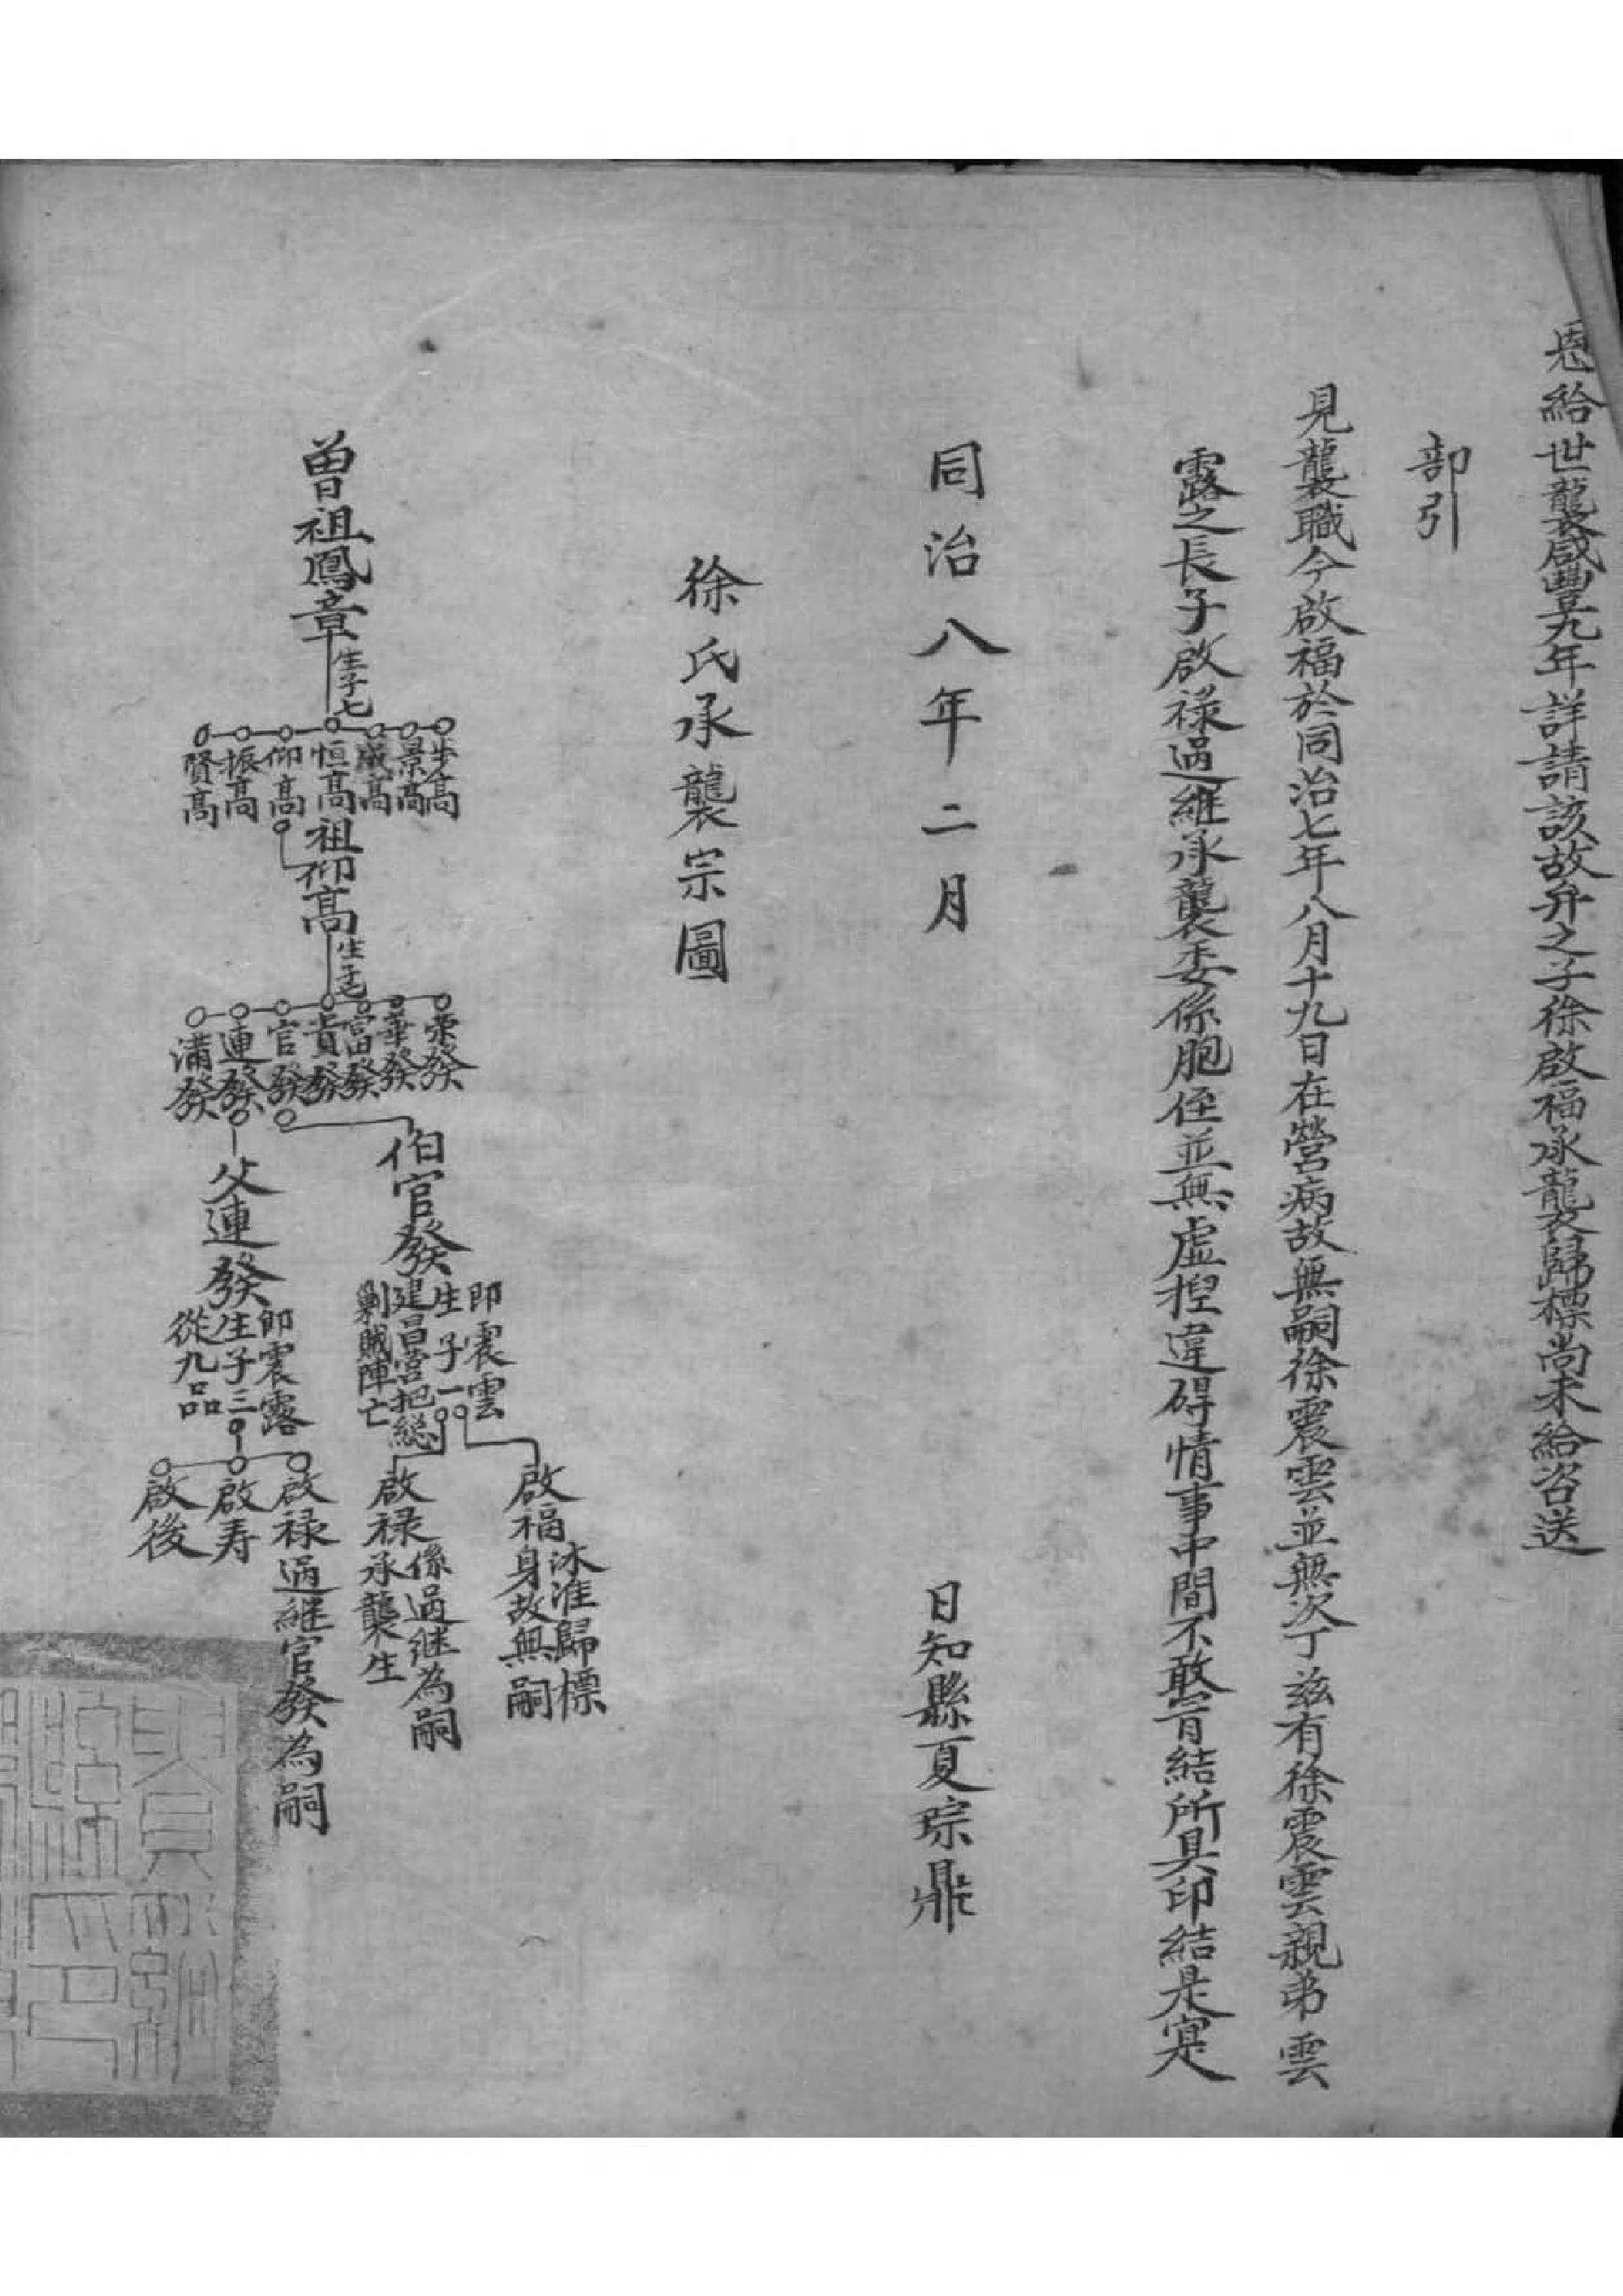 恩給世襲咸豐九年詳請該故弁之子徐啟福承襲歸標尚未給咨送
部引
見襲職今啟福於同治七年八月十九日在營病故無嗣徐震雲並無次丁茲有徐震雲親弟雲
露之長子啟祿過繼承襲委係胞侄並無虛捏違碍情事中間不敢冒結所具印結是寔
同治八年二月 日知縣夏琮鼎
徐氏承襲宗圖
曾祖鳳章
生子七
步高
景高
威高
恒高
仰高
振高
賢高
祖仰高
生子七
榮發
華發
富發
貴發
官發
連發
滿發
伯官發
即震雲
生子一
建昌營把総
剿賊陣亡
啟福
沐准歸標
身故無嗣
啟祿
係過继為嗣
承襲生
父連發
即震露
生子三
從九品
啟祿過継官發為嗣
啟寿
啟後